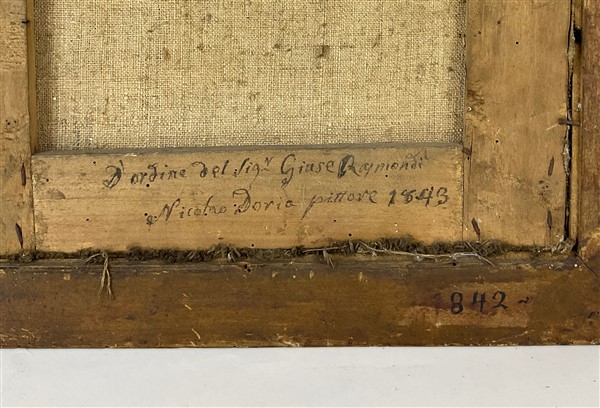 D'ordine del Sigr Giuse Raymondi
Nicolao Doria pittore 1843
1842